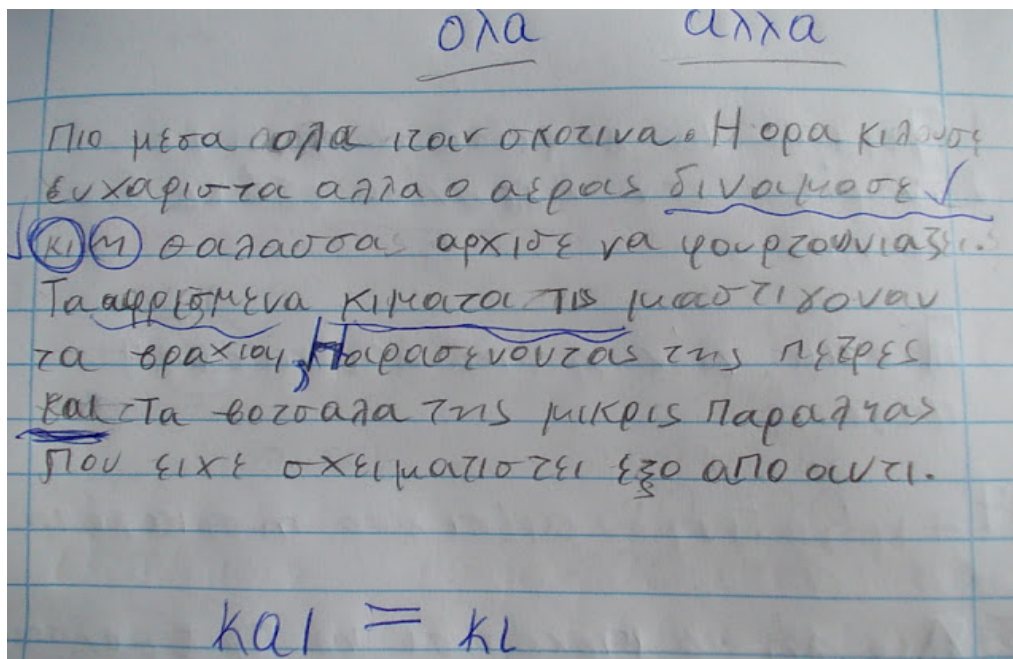 ολα αλλα
Πιο μεσα ολα ιταν σκοτινα. Η ορα κιλουσε
ευχαριστα αλλα ο αερας διναμοσε
κι η θαλασσας αρχισε να φουρτουνιαζει.
Τα αφρισμενα κιματα τις μαστιγοναν
τα βραχια, παρασενοντας της πετρες
και τα βοτσαλα της μικρις παραλιας
που ειχε σχειματιστει εξο απο αυτι.
και = κι